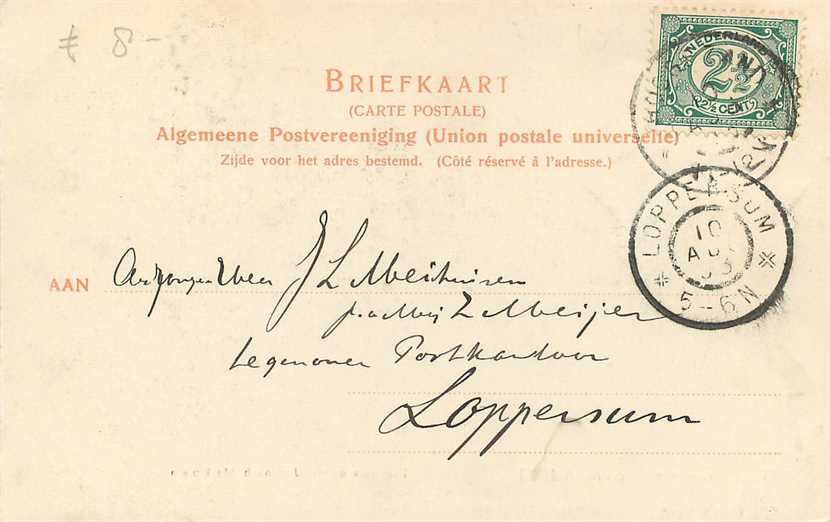 ƒ 8-
NEDERLAND
2½
2½ CENT
BRIEFKAART
(CARTE POSTALE)
Algemeene Postvereeniging (Union postale universelle)
Zijde voor het adres bestemd. (Côté réservé à l'adresse.)
LOPPERSUM
10
5-6N
AAN J L Meihuizen
Z Meijer
tegenover Postkantoor
Loppersum